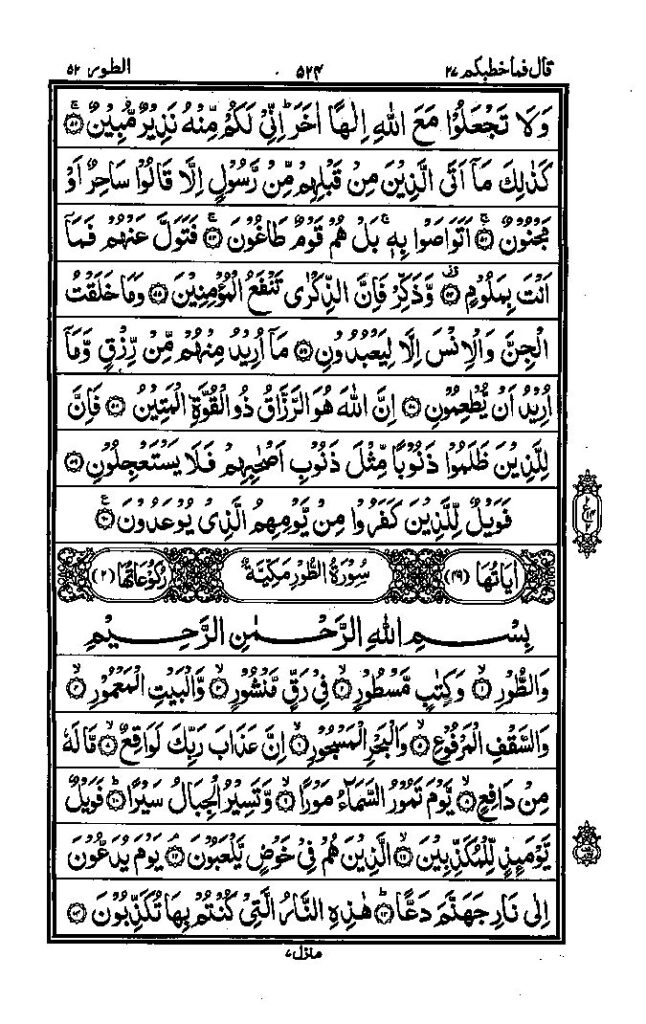 قال فما خطبكم ٢٧ ٥٢٤ الطور ٥٢
وَلَا تَجْعَلُوْا مَعَ اللّٰهِ اِلٰهًا اٰخَرَ ؕ اِنِّیْ لَكُمْ مِّنْهُ نَذِیْرٌ مُّبِیْنٌ ۚ﴿۵۱﴾
كَذٰلِكَ مَاۤ اَتَی الَّذِیْنَ مِنْ قَبْلِهِمْ مِّنْ رَّسُوْلٍ اِلَّا قَالُوْا سَاحِرٌ اَوْ
مَجْنُوْنٌ ۚ﴿۵۲﴾ اَتَوَاصَوْا بِهٖ ۚ بَلْ هُمْ قَوْمٌ طَاغُوْنَ ۚ﴿۵۳﴾ فَتَوَلَّ عَنْهُمْ فَمَاۤ
اَنْتَ بِمَلُوْمٍ ﴿۵۴﴾ وَّذَكِّرْ فَاِنَّ الذِّكْرٰی تَنْفَعُ الْمُؤْمِنِیْنَ ﴿۵۵﴾ وَمَا خَلَقْتُ
الْجِنَّ وَالْاِنْسَ اِلَّا لِیَعْبُدُوْنِ ﴿۵۶﴾ مَاۤ اُرِیْدُ مِنْهُمْ مِّنْ رِّزْقٍ وَّمَاۤ
اُرِیْدُ اَنْ یُّطْعِمُوْنِ ﴿۵۷﴾ اِنَّ اللّٰهَ هُوَ الرَّزَّاقُ ذُو الْقُوَّةِ الْمَتِیْنُ ﴿۵۸﴾ فَاِنَّ
لِلَّذِیْنَ ظَلَمُوْا ذَنُوْبًا مِّثْلَ ذَنُوْبِ اَصْحٰبِهِمْ فَلَا یَسْتَعْجِلُوْنِ ﴿۵۹﴾
فَوَیْلٌ لِّلَّذِیْنَ كَفَرُوْا مِنْ یَّوْمِهِمُ الَّذِیْ یُوْعَدُوْنَ ﴿۶۰﴾
اٰیَاتُهَا (٤٩) سُوْرَةُ الطُّوْرِ مَكِّیَّةٌ رُكُوْعَاتُهَا (٢)
بِسْمِ اللّٰهِ الرَّحْمٰنِ الرَّحِیْمِ
وَالطُّوْرِ ۙ﴿۱﴾ وَكِتٰبٍ مَّسْطُوْرٍ ۙ﴿۲﴾ فِیْ رَقٍّ مَّنْشُوْرٍ ۙ﴿۳﴾ وَّالْبَیْتِ الْمَعْمُوْرِ ۙ﴿۴﴾
وَالسَّقْفِ الْمَرْفُوْعِ ۙ﴿۵﴾ وَالْبَحْرِ الْمَسْجُوْرِ ۙ﴿۶﴾ اِنَّ عَذَابَ رَبِّكَ لَوَاقِعٌ ۙ﴿۷﴾ مَّا لَهٗ
مِنْ دَافِعٍ ۙ﴿۸﴾ یَّوْمَ تَمُوْرُ السَّمَآءُ مَوْرًا ۙ﴿۹﴾ وَّتَسِیْرُ الْجِبَالُ سَیْرًا ؕ﴿۱۰﴾ فَوَیْلٌ
یَّوْمَئِذٍ لِّلْمُكَذِّبِیْنَ ۙ﴿۱۱﴾ الَّذِیْنَ هُمْ فِیْ خَوْضٍ یَّلْعَبُوْنَ ۘ﴿۱۲﴾ یَوْمَ یُدَعُّوْنَ
اِلٰی نَارِ جَهَنَّمَ دَعًّا ؕ﴿۱۳﴾ هٰذِهِ النَّارُ الَّتِیْ كُنْتُمْ بِهَا تُكَذِّبُوْنَ ﴿۱۴﴾
منزل ٧